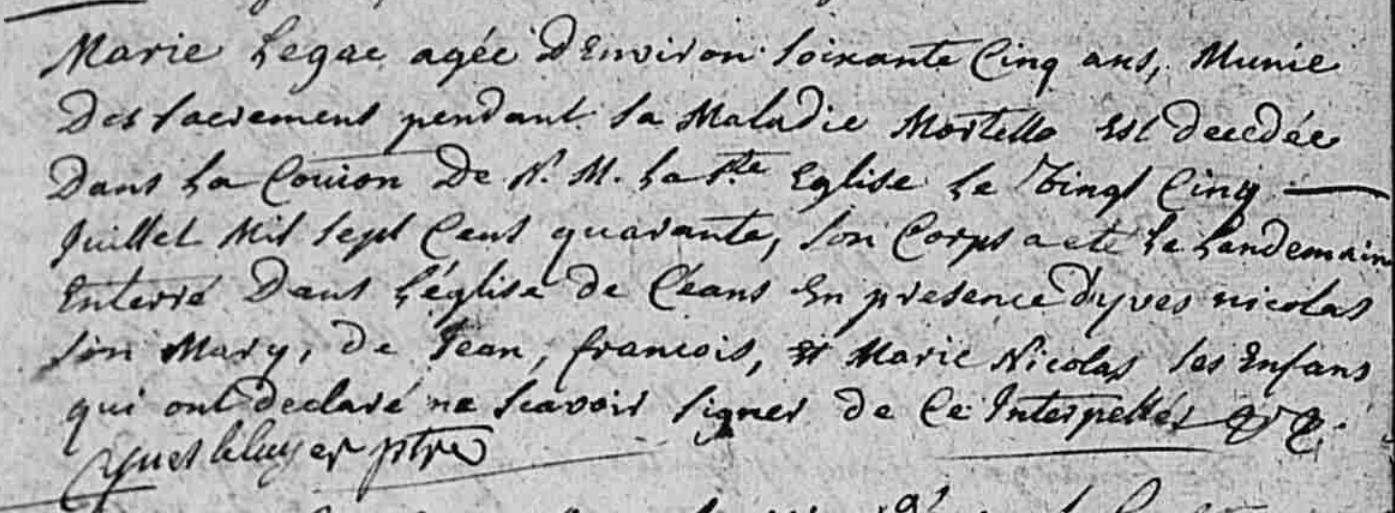 Marie Legac agée D'Environ Soixante Cinq ans, Munie
Des sacrement pendant sa Maladie Mortelle Est decedée
Dans La Comion De N. M. La Ste Eglise Le Vingt Cinq
Juillet Mil Sept Cent quarante, Son Corps a eté Le Landemain
Enterré Dans L'église de Céans En presence D'yves nicolas
Son Mary, De Jean, francois, Et Marie Nicolas ses Enfans
qui ont declaré ne scavoir signer de Ce Interpellés
ptre